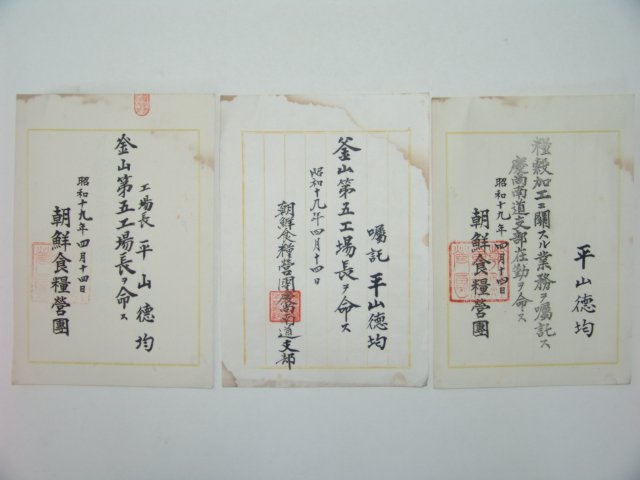 平山徳均
糧穀加工ニ關スル業務ヲ囑託ス
慶尚南道支部在勤ヲ命ス
昭和十九年四月十四日
朝鮮食糧營團
囑託 平山徳均
釜山第五工場長ヲ命ス
昭和十九年四月十四日
朝鮮食糧營團慶尚南道支部
工場長 平山徳均
釜山第五工場長ヲ命ス
昭和十九年四月十四日
朝鮮食糧營團